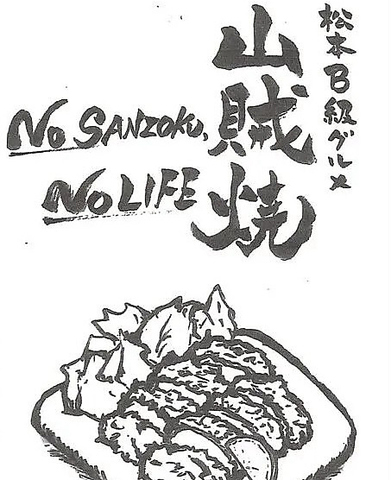 松本B級グルメ
山賊焼
No SANZOKU,
No LIFE